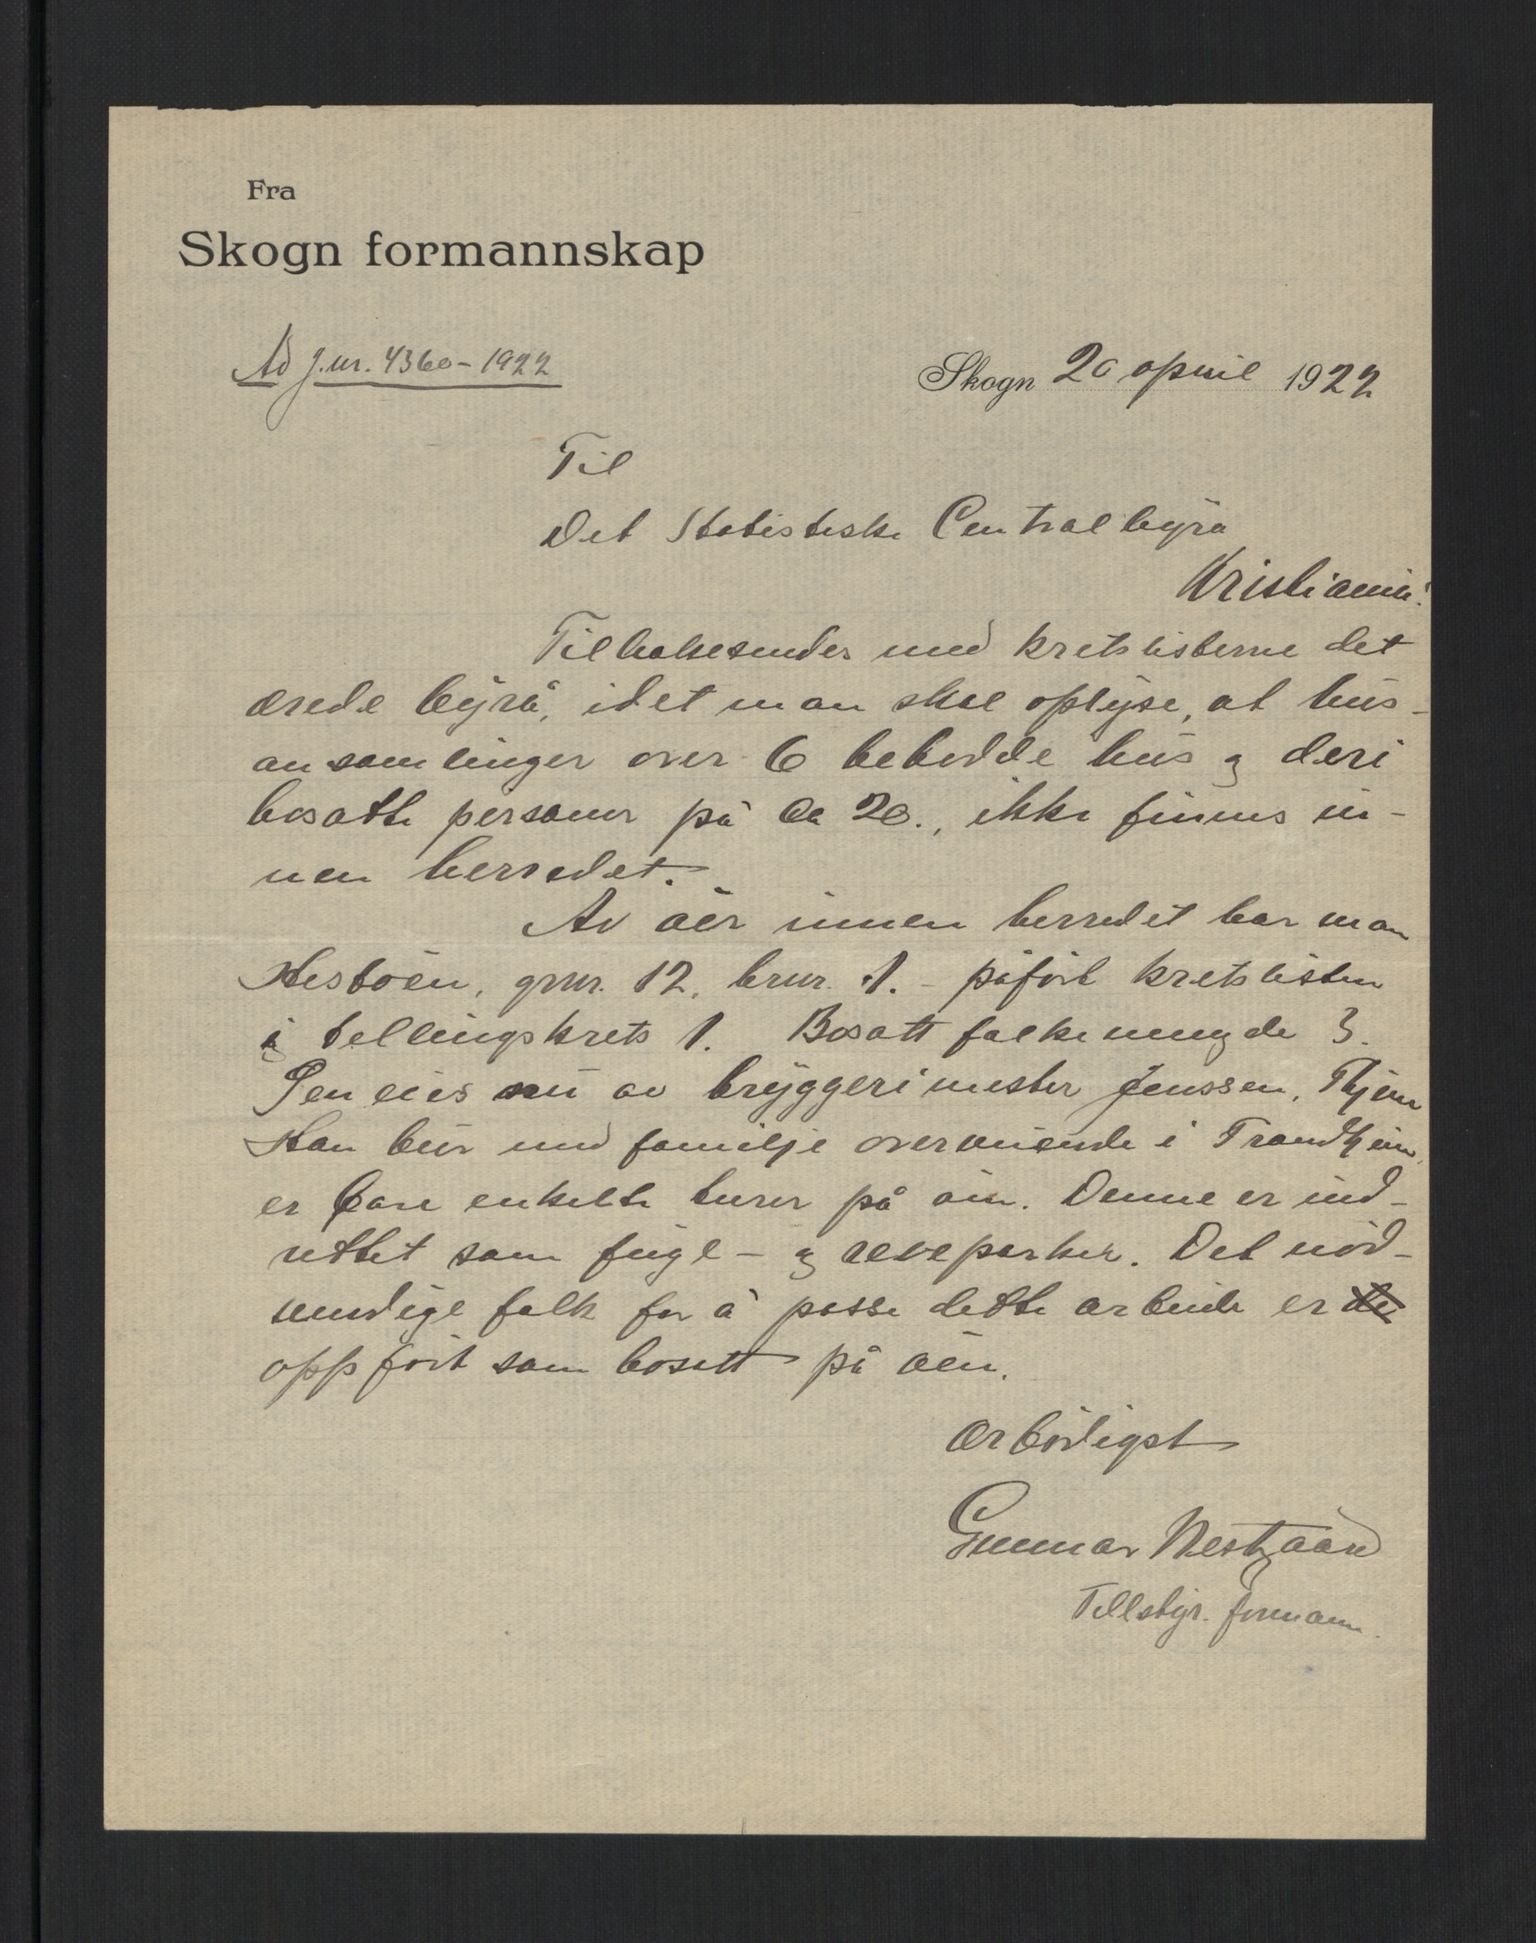 Fra
Skogn formannskap
Ad J.nr. 4360 - 1922
Skogn 20 april 1922
Til
Det Statistiske Centralbyrå
Kristiania.
Tilbakesendes med kretslisterne det
ærede byrå, idet man skal oplyse, at hus-
ansamlinger over 6 bebodde hus og deri
bosatte personer på ca 20., ikke finnes in-
nen herredet.
Av øer innen herredet har man
Hestøen, gnr. 12, brnr. 1. - påført kretslisten
i tellingskrets 1. Bosatt folkemengde 3.
Den eies nu av bryggerimester Jenssen, Thjem
Han bur med familje overveiende i Trondhjem,
er bare enkelte turer på øin. Denne er ind-
rettet som fugl - og revepark. Det nød-
vendige folk for å passe dette arbeide er
oppført som bosatt på øen.
Ærbødigst
Gunnar Nestgaard
Tellstyr. formann.